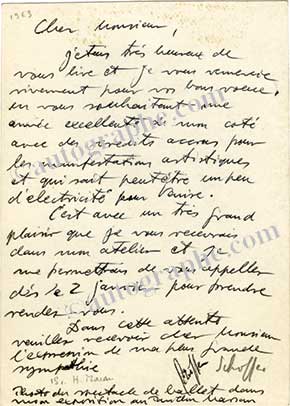 1969
Cher Monsieur,
j'étais très heureux de
vous lire et je vous remercie
vivement pour vos bons voeux,
en vous souhaitant une
année excellente de mon coté
avec des crédits accrus pour
les manifestations artistiques
et qui sait peutêtre un peu
d'électricité pour Venise.
C'est avec un très grand
plaisir que je vous recevrais
dans mon atelier et je
me permettrais de vous appeler
dès le 2 janvier pour prendre
rendez vous.
Dans cette attente
veuillez recevoir cher Monsieur
l'expression de ma plus grande
sympathie
Schöffer
Photo du spectacle de ballet dans
mon exposition au
©autographe.com
©autographe.com